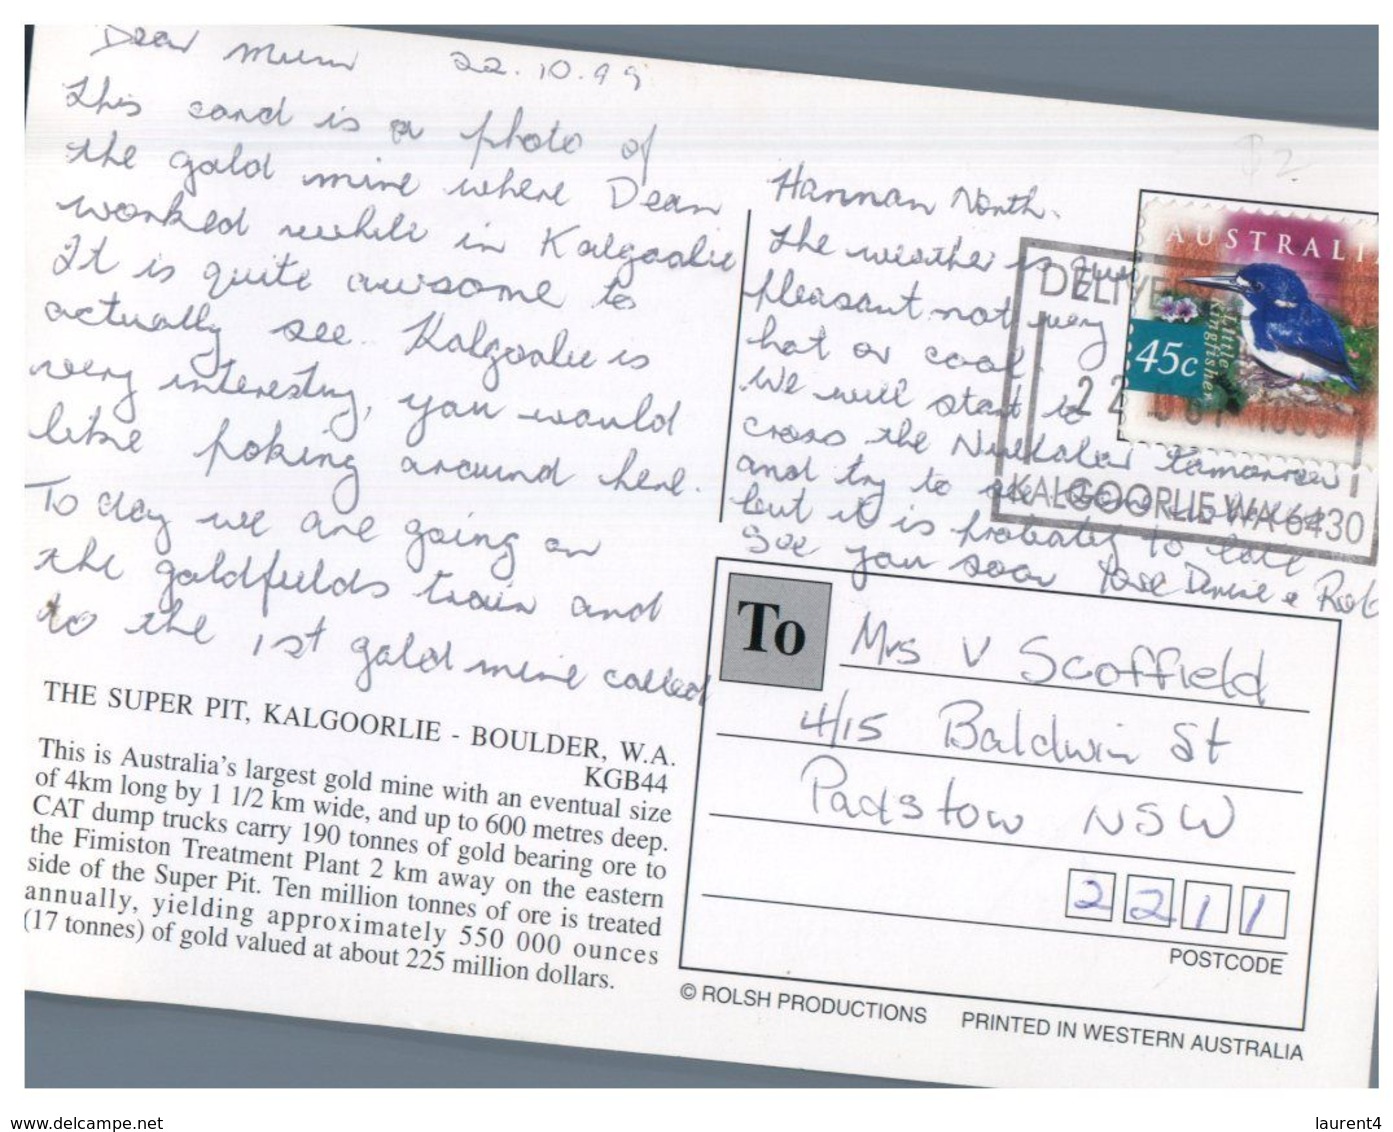 Dear Mum 22.10.99
This card is a photo of
the gold mine where Dean
worked while in Kalgoorlie
It is quite awsome to
actually see. Kalgoorlie is
very interesting, you would
like poking around here.
To day we are going on
the goldfields train and
to the 1st gold mine called
Hannan North.
The weather is
pleasant not very
hot or cool.
We will start to
cross the Nullabor tomorrow
and try to see
but it is probably to late
See you soon love Denise &
$2
AUSTRALIA
45c
Little Kingfisher
22
KALGOORLIE WA 6430
To
Mrs V Scoffield
4/15 Baldwin St
Padstow NSW
2211
POSTCODE
THE SUPER PIT, KALGOORLIE - BOULDER, W.A.
KGB44
This is Australia's largest gold mine with an eventual size
of 4km long by 1 1/2 km wide, and up to 600 metres deep.
CAT dump trucks carry 190 tonnes of gold bearing ore to
the Fimiston Treatment Plant 2 km away on the eastern
side of the Super Pit. Ten million tonnes of ore is treated
annually, yielding approximately 550 000 ounces
(17 tonnes) of gold valued at about 225 million dollars.
© ROLSH PRODUCTIONS PRINTED IN WESTERN AUSTRALIA
www.delcampe.net
laurent4